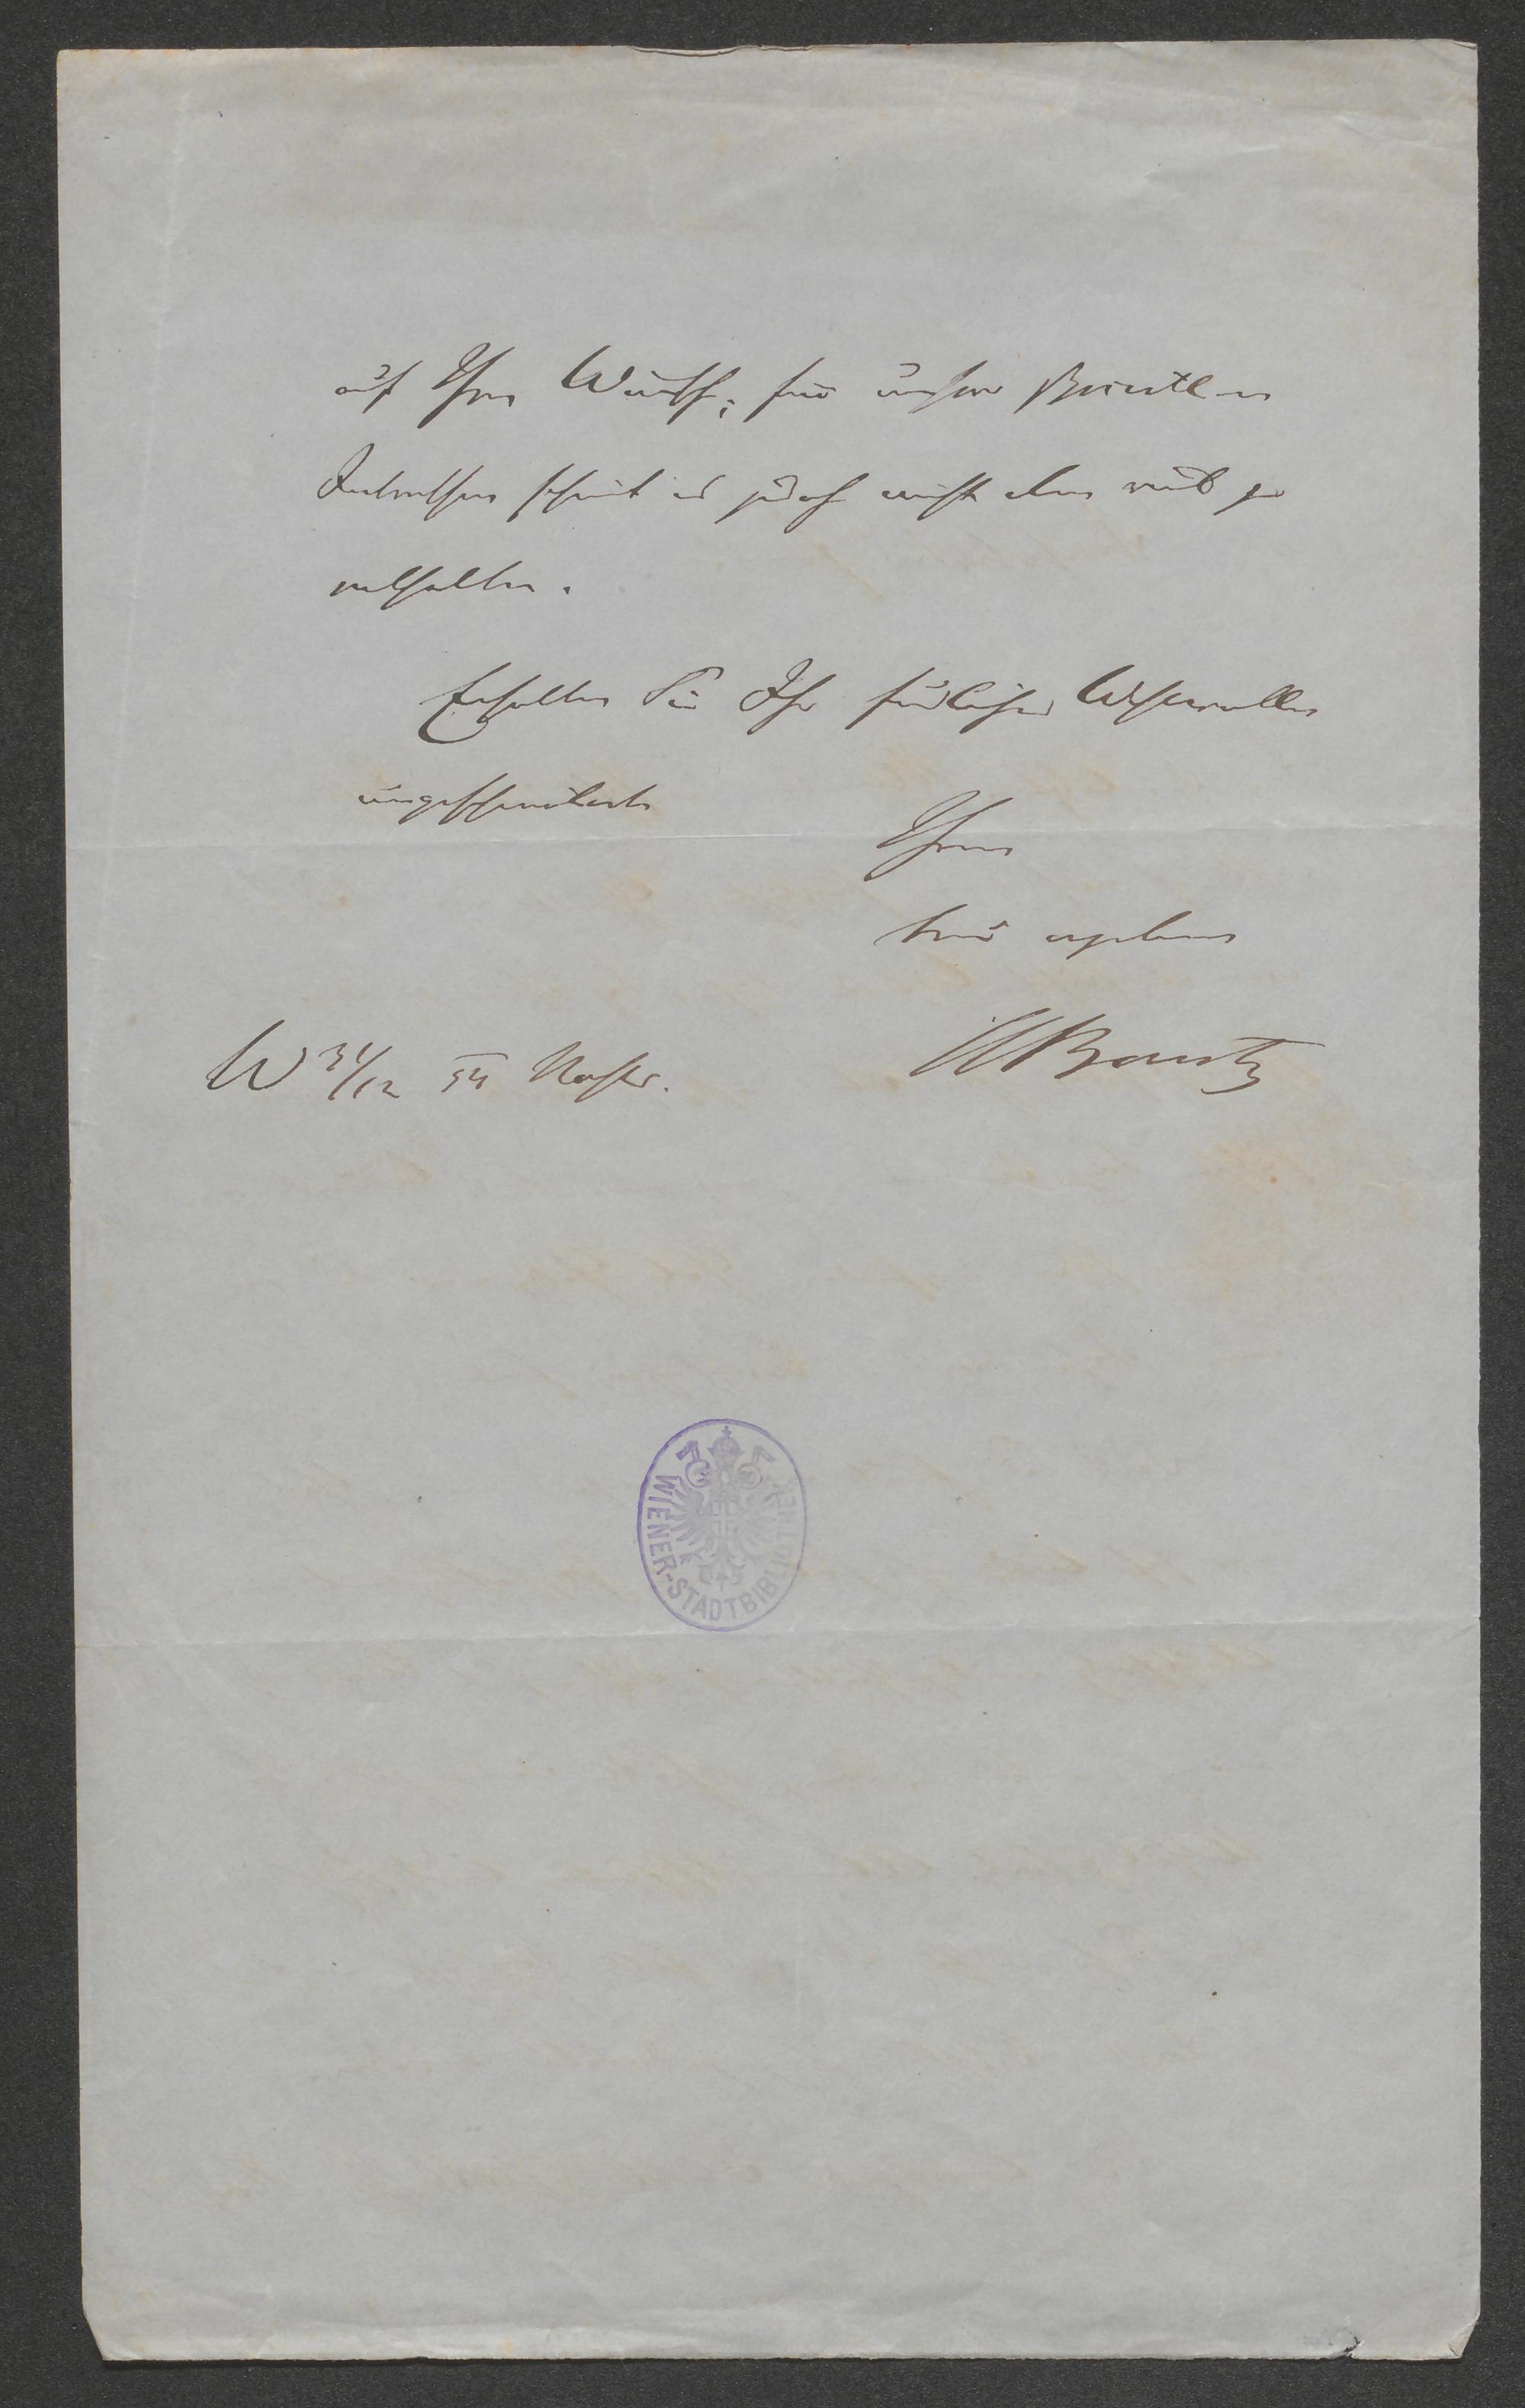 auf Ihren Wunsch; für unsere
Interessen scheint es jedoch nicht eben viel zu
enthalten.
Erhalten Sie Ihr freundliches Wohlwollen
ungeschmälert
Ihrem
treu ergebenen
W 31/12 54 Nachts.
WIENER-STADTBIBLIOTHEK